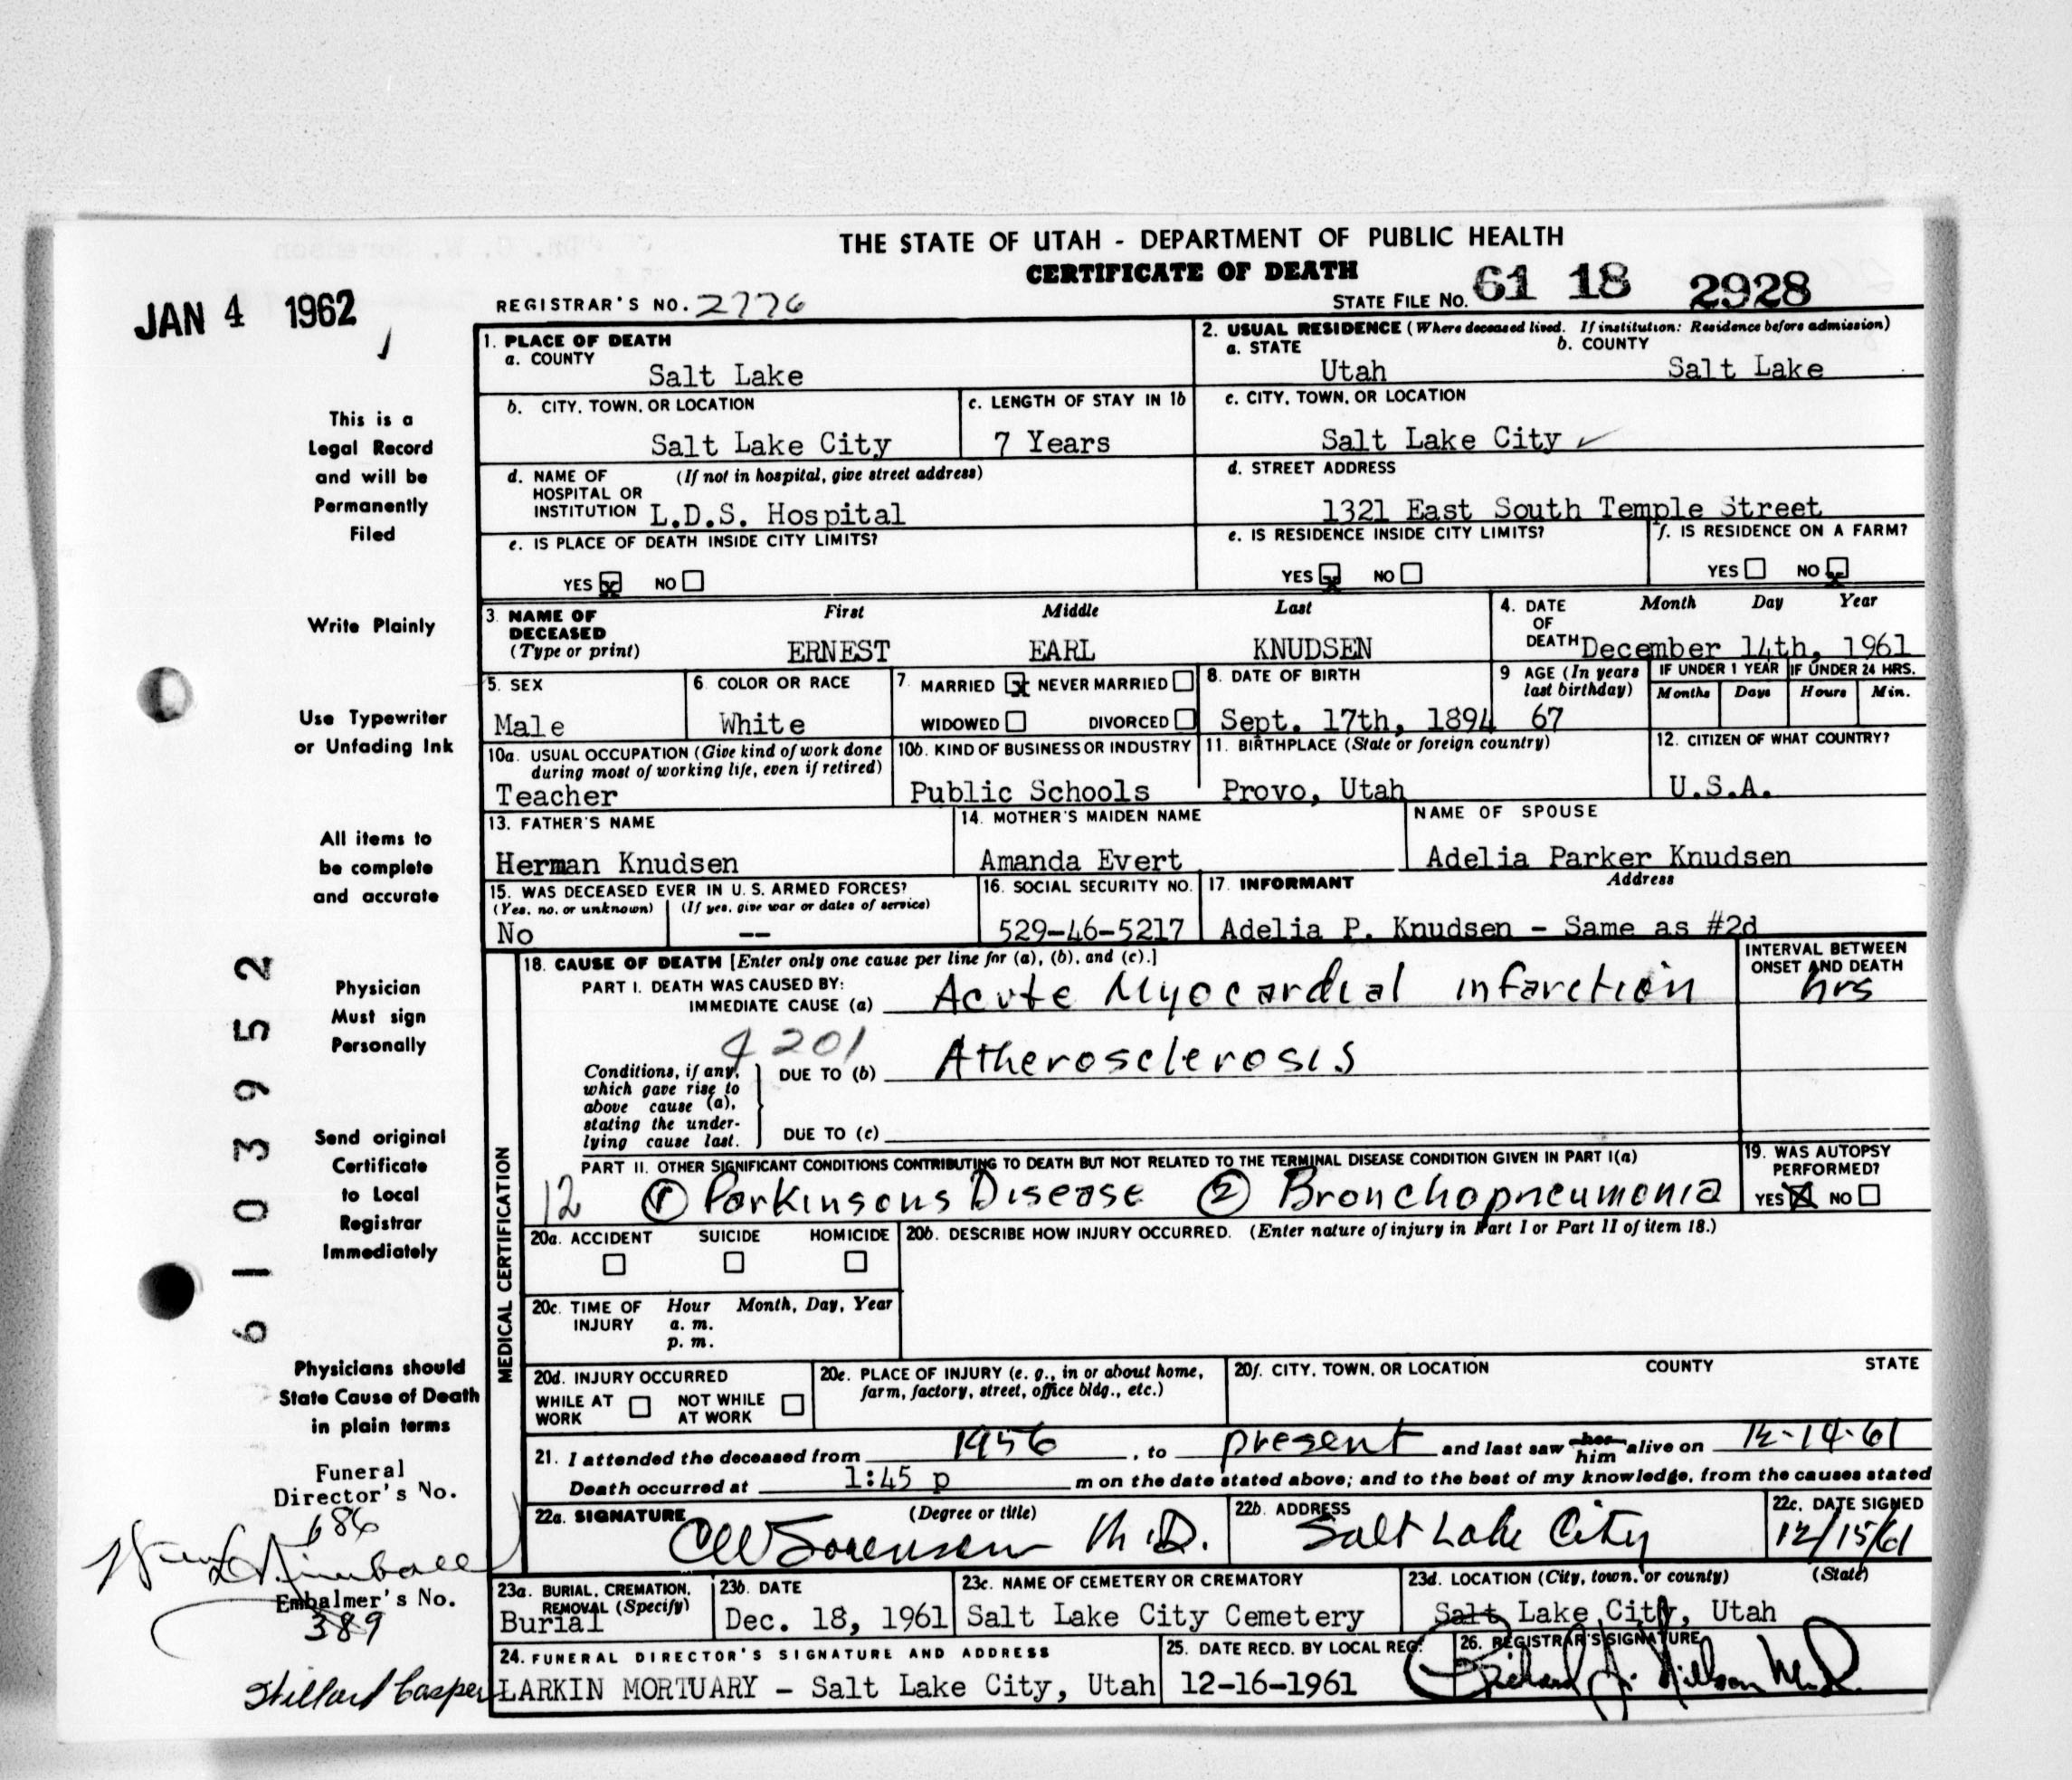 THE STATE OF UTAH - DEPARTMENT OF PUBLIC HEALTH
CERTIFICATE OF DEATH
JAN 4 1962
REGISTRAR'S NO. 2776
STATE FILE NO. 61 18 2928
1. PLACE OF DEATH
a. COUNTY
Salt Lake
2. USUAL RESIDENCE (Where deceased lived. If institution: Residence before admission)
a. STATE b. COUNTY
Utah Salt Lake
b. CITY, TOWN, OR LOCATION
Salt Lake City
c. LENGTH OF STAY IN 1b
7 Years
c. CITY, TOWN, OR LOCATION
Salt Lake City
d. NAME OF (If not in hospital, give street address)
HOSPITAL OR
INSTITUTION L.D.S. Hospital
d. STREET ADDRESS
1321 East South Temple Street
e. IS PLACE OF DEATH INSIDE CITY LIMITS?
YES x NO
e. IS RESIDENCE INSIDE CITY LIMITS?
YES x NO
f. IS RESIDENCE ON A FARM?
YES NO x
3. NAME OF
DECEASED
(Type or print)
First Middle Last
ERNEST EARL KNUDSEN
4. DATE Month Day Year
OF
DEATH December 14th, 1961
5. SEX
Male
6. COLOR OR RACE
White
7. MARRIED x NEVER MARRIED
WIDOWED DIVORCED
8. DATE OF BIRTH
Sept. 17th, 1894
9 AGE (In years
last birthday)
67
IF UNDER 1 YEAR IF UNDER 24 HRS.
Months Days Hours Min.
10a. USUAL OCCUPATION (Give kind of work done
during most of working life, even if retired)
Teacher
10b. KIND OF BUSINESS OR INDUSTRY
Public Schools
11. BIRTHPLACE (State or foreign country)
Provo, Utah
12. CITIZEN OF WHAT COUNTRY?
U.S.A.
13. FATHER'S NAME
Herman Knudsen
14. MOTHER'S MAIDEN NAME
Amanda Evert
NAME OF SPOUSE
Adelia Parker Knudsen
15. WAS DECEASED EVER IN U. S. ARMED FORCES?
(Yes, no, or unknown) (If yes, give war or dates of service)
No --
16. SOCIAL SECURITY NO.
529-46-5217
17. INFORMANT Address
Adelia P. Knudsen - Same as #2d
MEDICAL CERTIFICATION
18. CAUSE OF DEATH [Enter only one cause per line for (a), (b), and (c).]
INTERVAL BETWEEN
ONSET AND DEATH
PART I. DEATH WAS CAUSED BY:
IMMEDIATE CAUSE (a) Acute Myocardial infarction hrs
4201
Conditions, if any,
which gave rise to
above cause (a),
stating the under-
lying cause last.
DUE TO (b) Atherosclerosis
DUE TO (c)
PART II. OTHER SIGNIFICANT CONDITIONS CONTRIBUTING TO DEATH BUT NOT RELATED TO THE TERMINAL DISEASE CONDITION GIVEN IN PART I(a)
12 ① Parkinsons Disease ② Bronchopneumonia
19. WAS AUTOPSY
PERFORMED?
YES X NO
20a. ACCIDENT SUICIDE HOMICIDE
20b. DESCRIBE HOW INJURY OCCURRED. (Enter nature of injury in Part I or Part II of item 18.)
20c. TIME OF Hour Month, Day, Year
INJURY a. m.
p. m.
20d. INJURY OCCURRED
WHILE AT NOT WHILE
WORK AT WORK
20e. PLACE OF INJURY (e. g., in or about home,
farm, factory, street, office bldg., etc.)
20f. CITY, TOWN, OR LOCATION COUNTY STATE
21. I attended the deceased from 1956, to present and last saw her him alive on 12-14-61
Death occurred at 1:45 p m on the date stated above; and to the best of my knowledge, from the causes stated
22a. SIGNATURE (Degree or title)
CW Sorensen M.D.
22b. ADDRESS
Salt Lake City
22c. DATE SIGNED
12/15/61
23a. BURIAL, CREMATION,
REMOVAL (Specify)
Burial
23b. DATE
Dec. 18, 1961
23c. NAME OF CEMETERY OR CREMATORY
Salt Lake City Cemetery
23d. LOCATION (City, town, or county) (State)
Salt Lake City, Utah
24. FUNERAL DIRECTOR'S SIGNATURE AND ADDRESS
LARKIN MORTUARY - Salt Lake City, Utah
25. DATE RECD. BY LOCAL REG.
12-16-1961
26. REGISTRAR'S SIGNATURE
Richard J. Nilson M.D.
This is a
Legal Record
and will be
Permanently
Filed
Write Plainly
Use Typewriter
or Unfading Ink
All items to
be complete
and accurate
Physician
Must sign
Personally
Send original
Certificate
to Local
Registrar
Immediately
Physicians should
State Cause of Death
in plain terms
Funeral
Director's No.
686
Kimball
Embalmer's No.
389
Casper
6103952